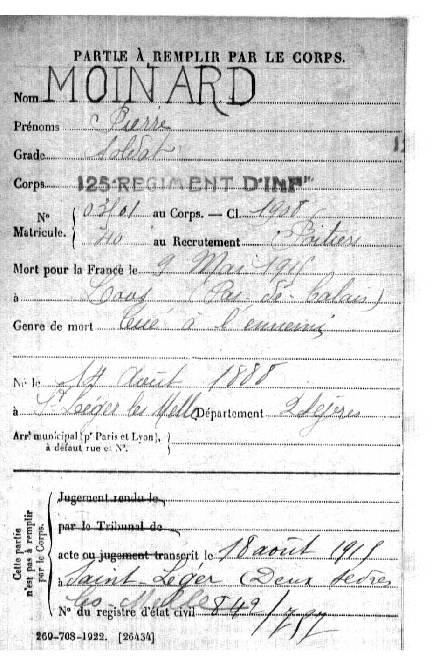 PARTIE À REMPLIR PAR LE CORPS.
Nom MOINARD
Prénoms Pierre
Grade Soldat
Corps 125e REGIMENT D'INFie
Nº Matricule. { 03101 au Corps. — Cl. 1908
710 au Recrutement Poitiers
Mort pour la France le 9 Mai 1915
à Loos (Pas-de-Calais)
Genre de mort Tué à l'ennemi
Né le 14 Août 1888
à St Léger les Melle Département 2 Sèvres
Arrt municipal (pr Paris et Lyon), à défaut rue et Nº. }
Cette partie n'est pas à remplir par le Corps.
Jugement rendu le
par le Tribunal de
acte ou jugement transcrit le 18 août 1915
à Saint-Léger (Deux Sèvres
les Melle
Nº du registre d'état civil 849/797
260-708-1922. [26434]